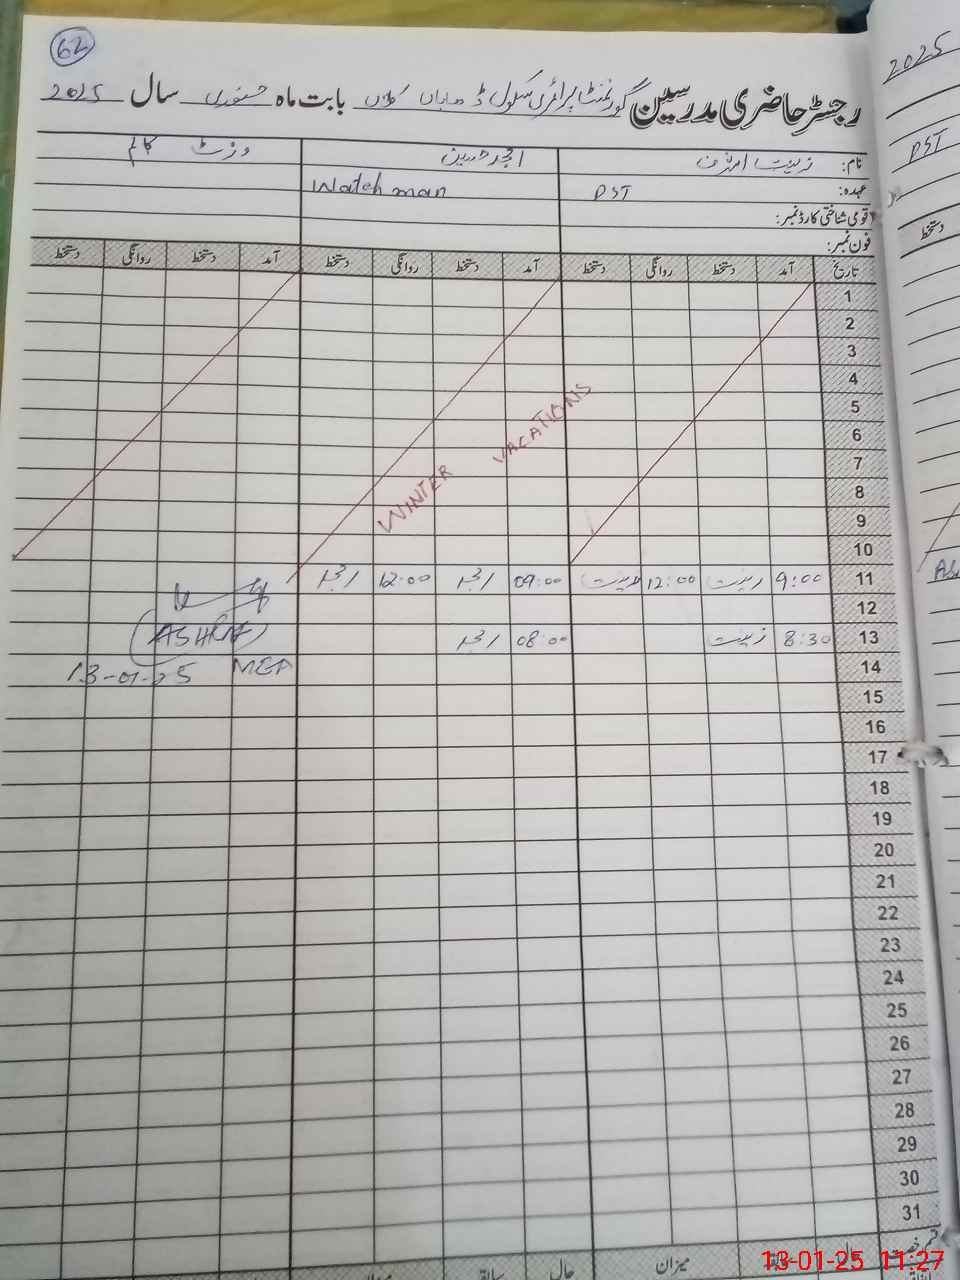 62
رجسٹر حاضری مدرسین گورنمنٹ پرائمری سکول ڈھاباں کلاں بابت ماہ جنوری سال 2025
2025
نام: زینت اشرف امجد حسین وزٹ کالم
عہدہ: PST Watch man
PST
قومی شناختی کارڈ نمبر:
فون نمبر:
تاریخ آمد دستخط روانگی دستخط آمد دستخط روانگی دستخط آمد دستخط روانگی دستخط
دستخط
1
2
3
4
5
6
7
8
9
10
WINTER VACATIONS
11 9:00 زینت 12:00 زینت 09:00 امجد 12:00 امجد
12
13 8:30 زینت 08:00 امجد
ASHRAF
14
MEA
13-01-25
15
16
17
18
19
20
21
22
23
24
25
26
27
28
29
30
31
قسم رخصت حال سابقہ میزان حال سابقہ میزان
13-01-25 11:27